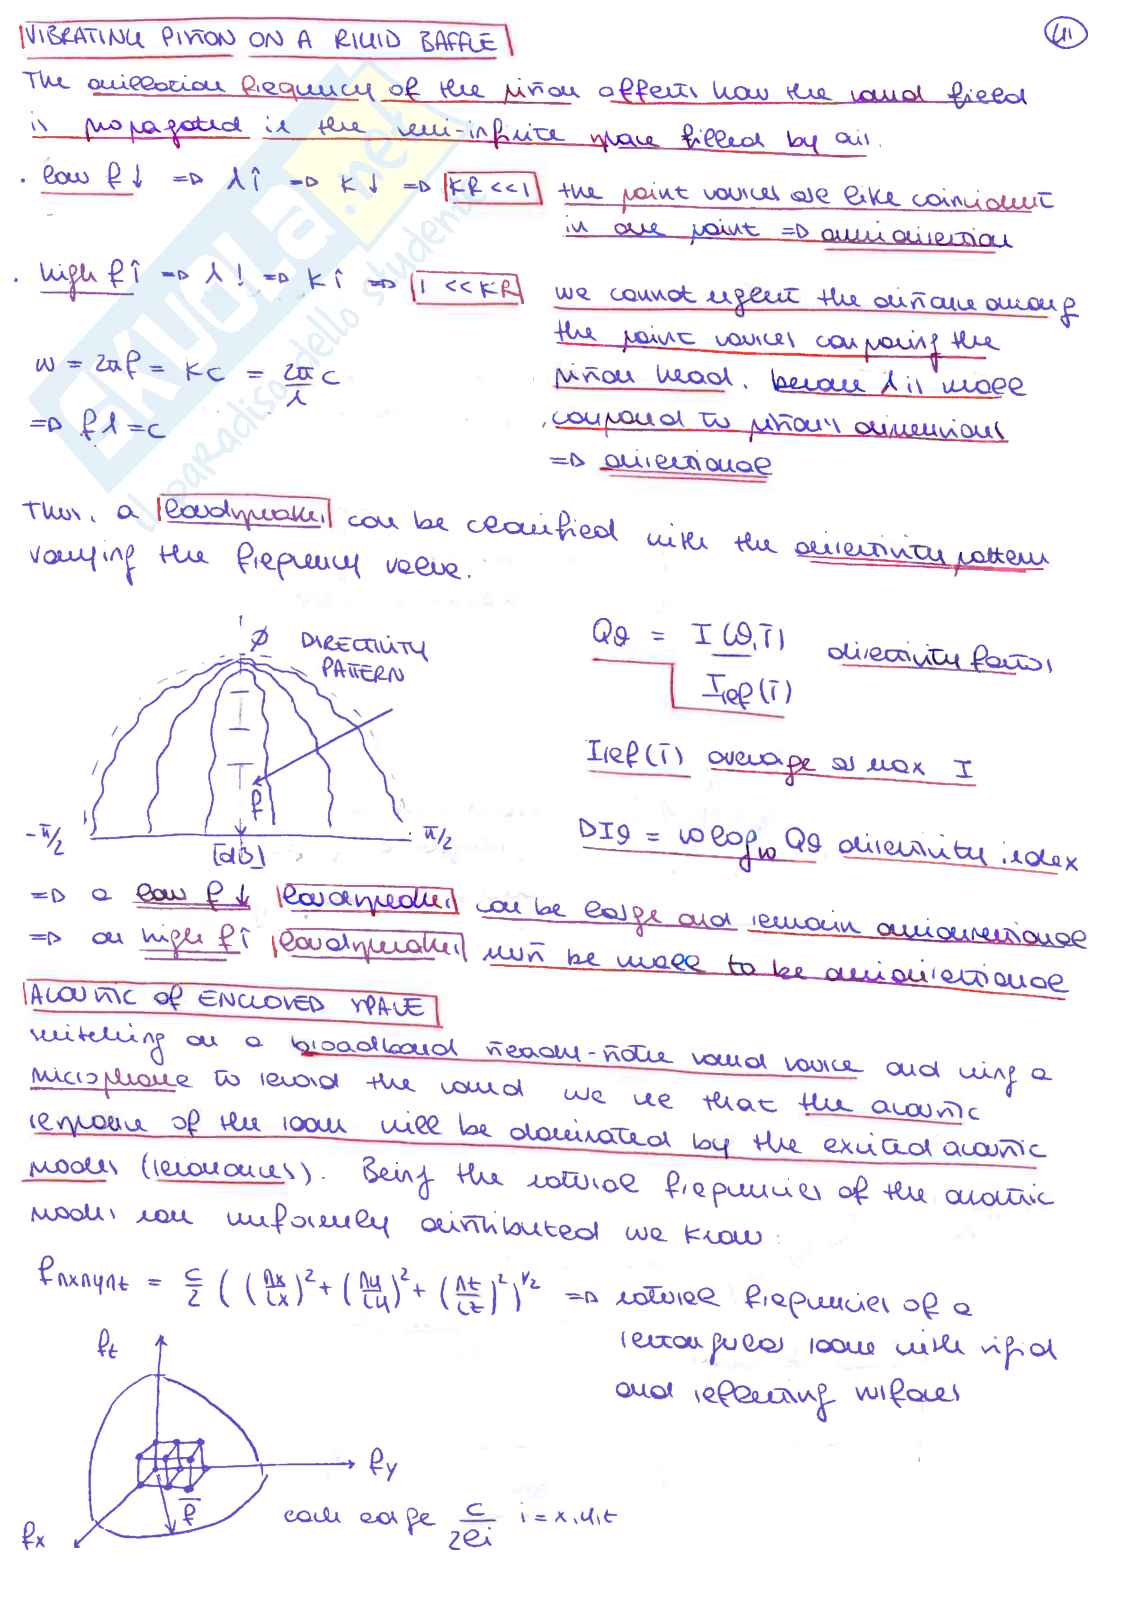 VIBRATING PISTON ON A RIGID BAFFLE
41
The oscillation frequency of the piston affects how the sound field
is propagated in the semi-infinite space filled by air.
· low f ↓ ⇒ λ ↑ ⇒ K ↓ ⇒ KR << 1 the point sources are like coincident
in one point ⇒ omnidirection
· high f ↑ ⇒ λ ↓ ⇒ K ↑ ⇒ 1 << KR we cannot neglect the distance among
the point sources composing the
piston head, because λ is small
compared to piston's dimensions
⇒ directional
ω = 2πf = KC = 2π/λ C
⇒ fλ = C
Thus, a loudspeaker can be classified with the directivity pattern
varying the frequency value.
φ DIRECTIVITY
PATTERN
f
-π/2
π/2
[dB]
Qϑ = I(ϑ, r̄) / Iref(r̄) directivity factor
Iref(r̄) average or max I
DIϑ = 10 log10 Qϑ directivity index
⇒ a low f ↓ loudspeaker can be large and remain omnidirectional
⇒ an high f ↑ loudspeaker must be small to be omnidirectional
ACOUSTIC OF ENCLOSED SPACE
switching on a broadband steady-state sound source and using a
microphone to record the sound we see that the acoustic
response of the room will be dominated by the excited acoustic
modes (resonances). Being the natural frequencies of the acoustic
modes non uniformly distributed we know:
fnxnynz = C/2 ( (nx/Lx)² + (ny/Ly)² + (nz/Lz)² )^1/2 ⇒ natural frequencies of a
rectangular room with rigid
and reflecting surfaces
fz
fy
f̄
fx
each edge C/2ei i = x, y, z
SKUOLA.net
il paradiso dello studente